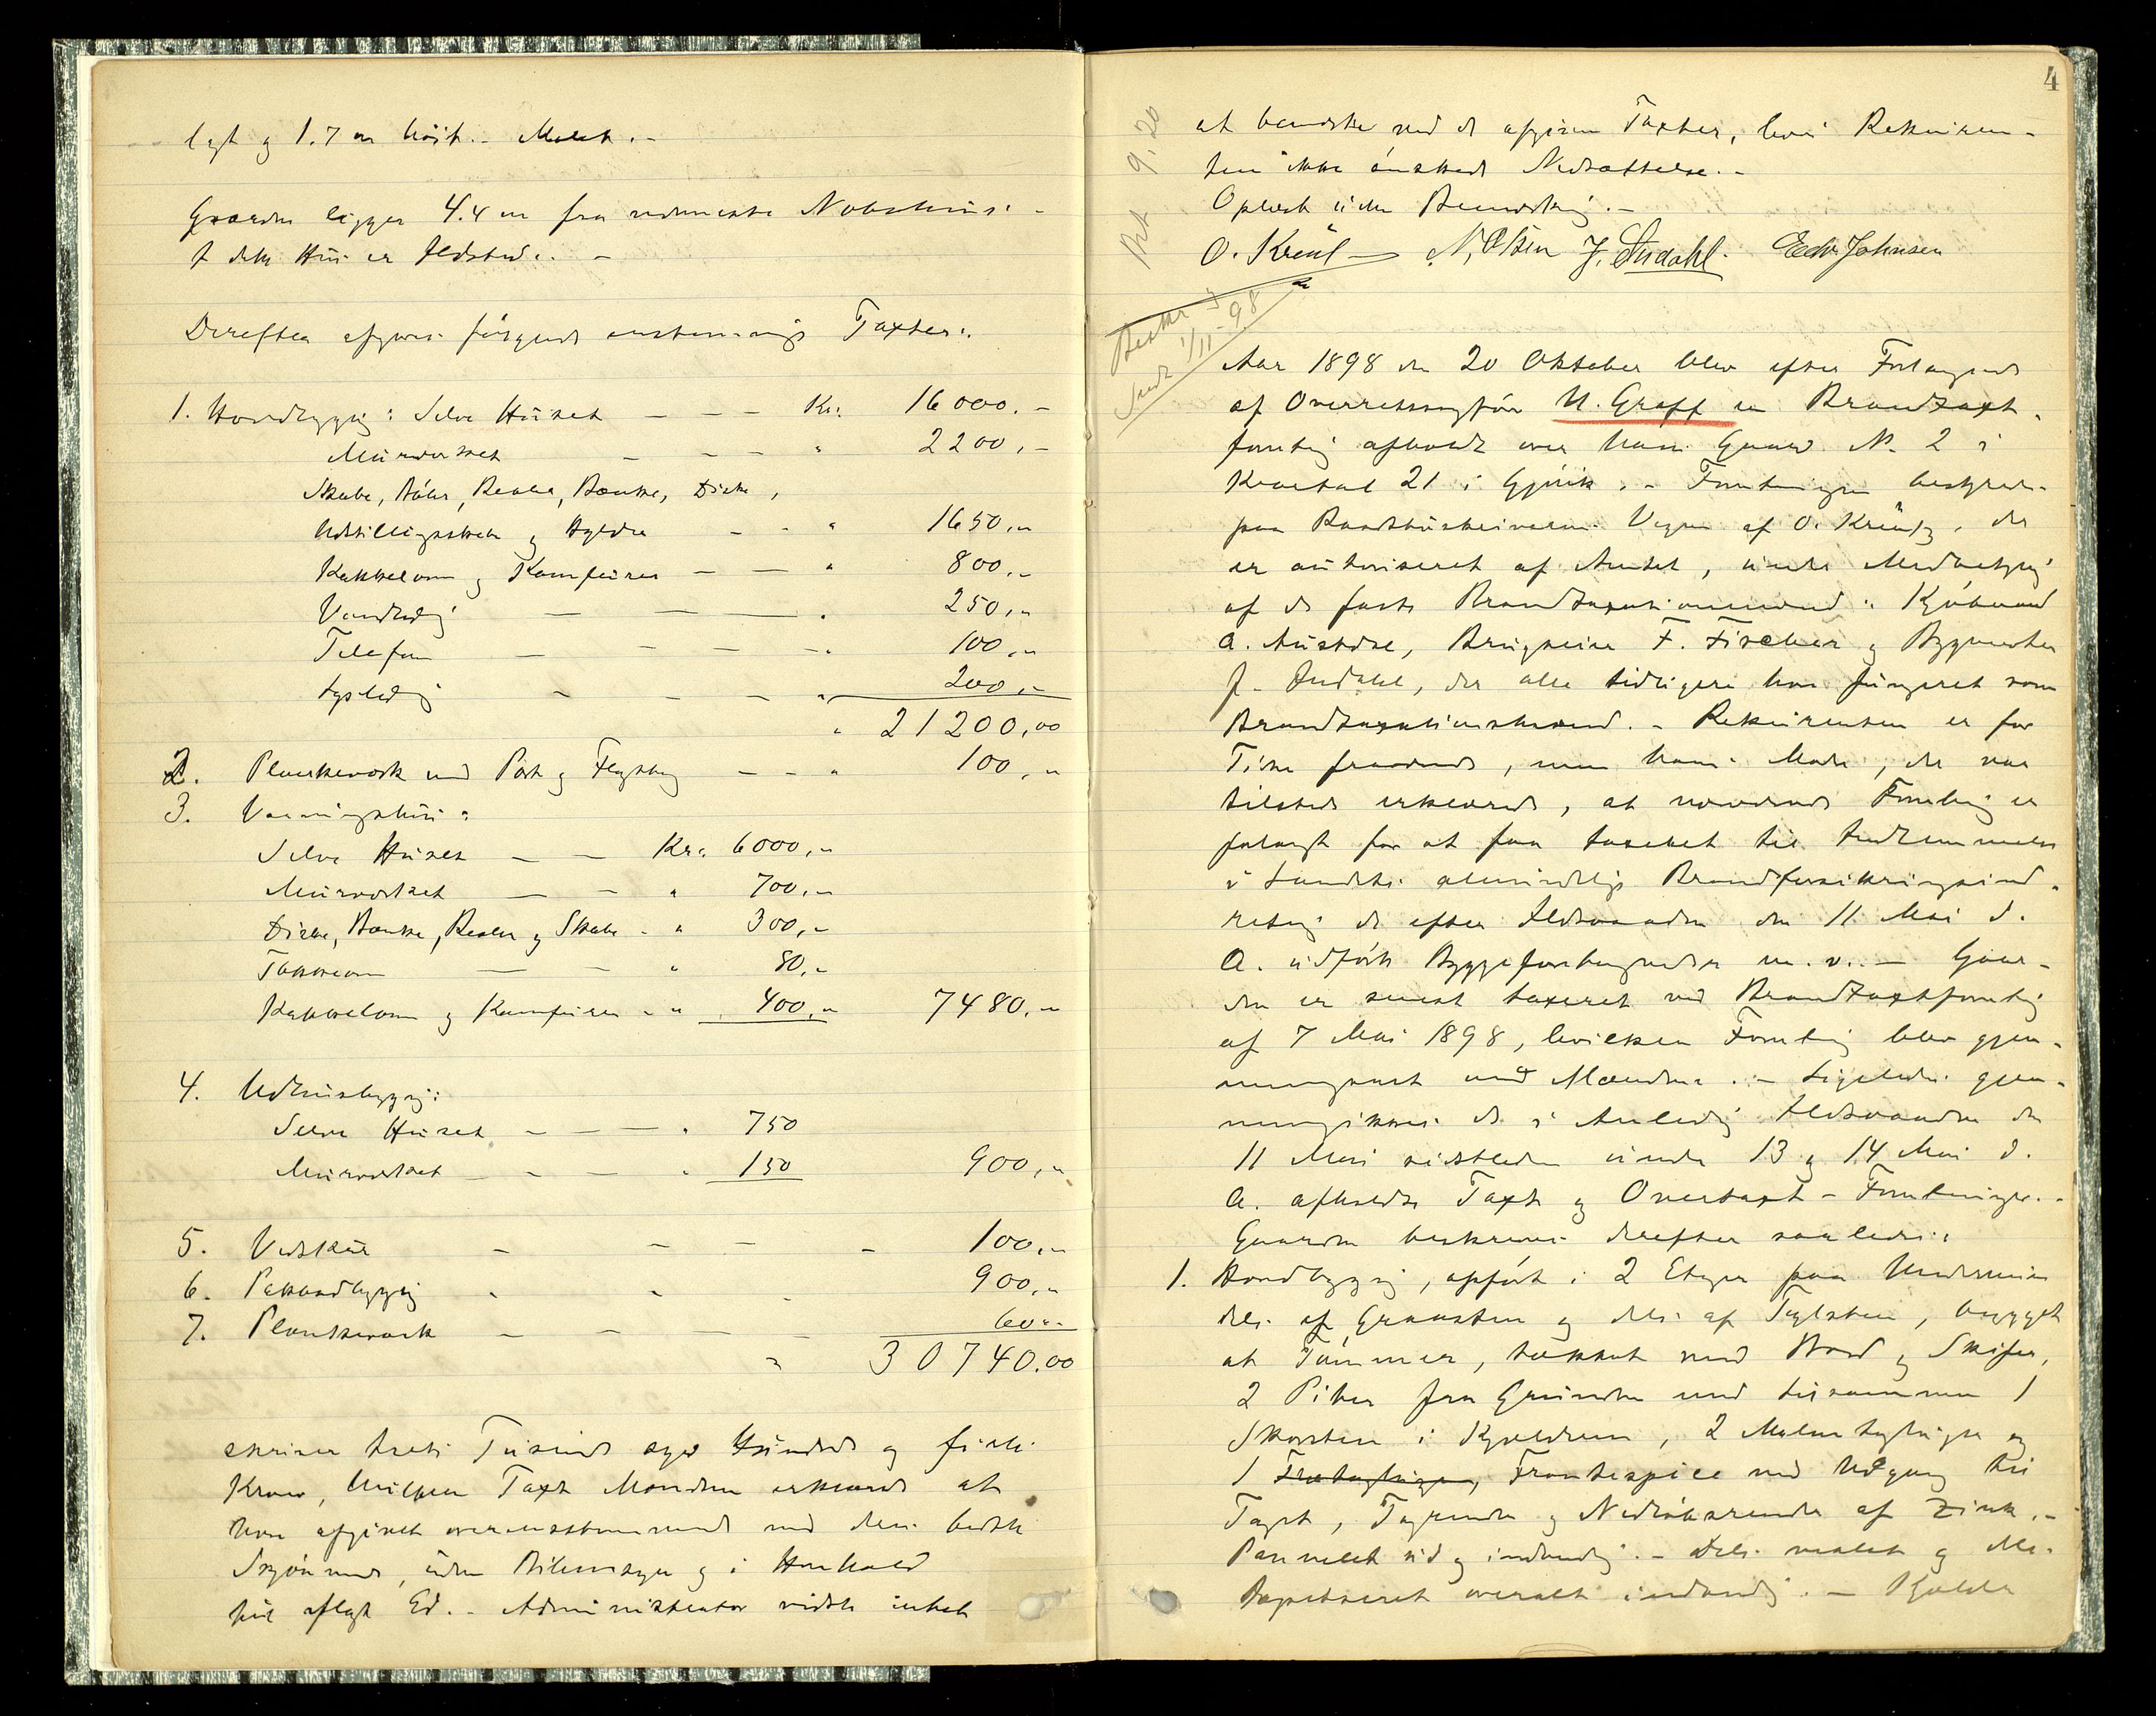 lagt og 1.7 m høit.- Malet.-
Gaarden ligger 4.4 m fra nærmeste Nabohus.-
I dette Hus er Ildsted.-
Derefter afgives følgende enstemmige Taxter:
1. Hovedbygnig: Selve Huset - - - Kr. 16000.-
Murværket - - - " 2200,-
Skabe, Døre, Reoler, Bænke, Diske,
Udstillingsskabe og Hylder - - " 1650,-
Kakkelovne og Komfurer - - " 800,-
Vandledig - - - " 250,-
Telefon - - - - " 100,-
Lysledig - - - - " 200,-
" 21200,00
2. Plankeværk med Port og - - " 100,-
3. Vaaningshus:
Selve Huset - - Kr. 6000,-
Murværket - - " 700,-
Diske, Bænke, Reoler og Skabe - " 300,-
- - " 80,-
Kakkelovne og Komfurer - " 400,- 7480,-
4. Udhusbygnig:
Selve Huset - - - " 750
Murværket - - - " 150 900,-
5. Vedskur - - - - 100,-
6. Pakbodbygnig - - - 900,-
7. Plankeværk - - - - 60,-
" 30740.00
skriver treti Tusinde syv Hundrede og firti
Kroner, hvilken Taxt Mændene erklærede at
have afgivet overensstemmende med deres bedste
Skjønnende, uden Bihensyn og i Henhold
til aflagt Ed.- Administrator vidste intet
4
at bemærke ved de afgivne Taxter, hvis Rekviren-
ten ikke ønskede Nedsættelse.-
Oplæst uden Bemærknig.-
O. Kreül - N. Olsen J. Indahl. Edv. Johnsen
9.20
Beskr
Sendt 1/11-98
Aar 1898 den 20 Oktober blev efter Forlangende
af Overretssagfører N. Graff en Brandtaxt-
forretnig afholdt over hans Gaard No. 2 i
Kvartal 21 i Gjøvik.- Forretningen bestyres
paa Raadstuskriverens Vegne af O. Kreütz, der
er autoriseret af Amtet, under Medvirknig
af de faste Brandtaxationsmænd: Kjøbmand
A. Austdal, Brugseier F. Fischer og Bygmester
J. Indahl, der alle tidligere har fungeret som
Brandtaxationsmænd.- Rekvirenten er for
Tiden fraværende, men hans Moder, der var
tilstede erklærede, at nærværende Forretnig er
forlangt for at faa taxeret til Indlemmelse
i Landets almindelige Brandforsikringsind-
retnig de efter Ildsvaaden den 11 Mai d.
A. udførte Byggeforetagender m. v.- Gaar-
den er senest taxeret ved Brandtaxtforretnig
af 7 Mai 1898, hvilken Forretnig blev gjen-
nemgaaet med Mændene.- Ligeledes gjen-
nemgikkes de i Anledig Ildsvaaden den
11 Mai sidstleden under 13 og 14 Mai d.
A. afholdte Taxt og Overtaxt-Forretninger.-
Gaarden beskrives derefter saaledes:
1. Hovedbygnig, opført i 2 Etager paa Undermur
dels af Graasten og dels af Teglsten, bygget
af Tømmer, tækket med Bord og Skifer,
2 Piber fra Grunden med tilsammen 1
Skorsten i Kjælderen, 2 og
1 Frontespice med Udgang til
Taget, Tagrender og Nedløbsrender af Zink.-
Panelet ud og indvendig.- Dels malet og dels
tapetseret overalt indvendig.- Kjælder